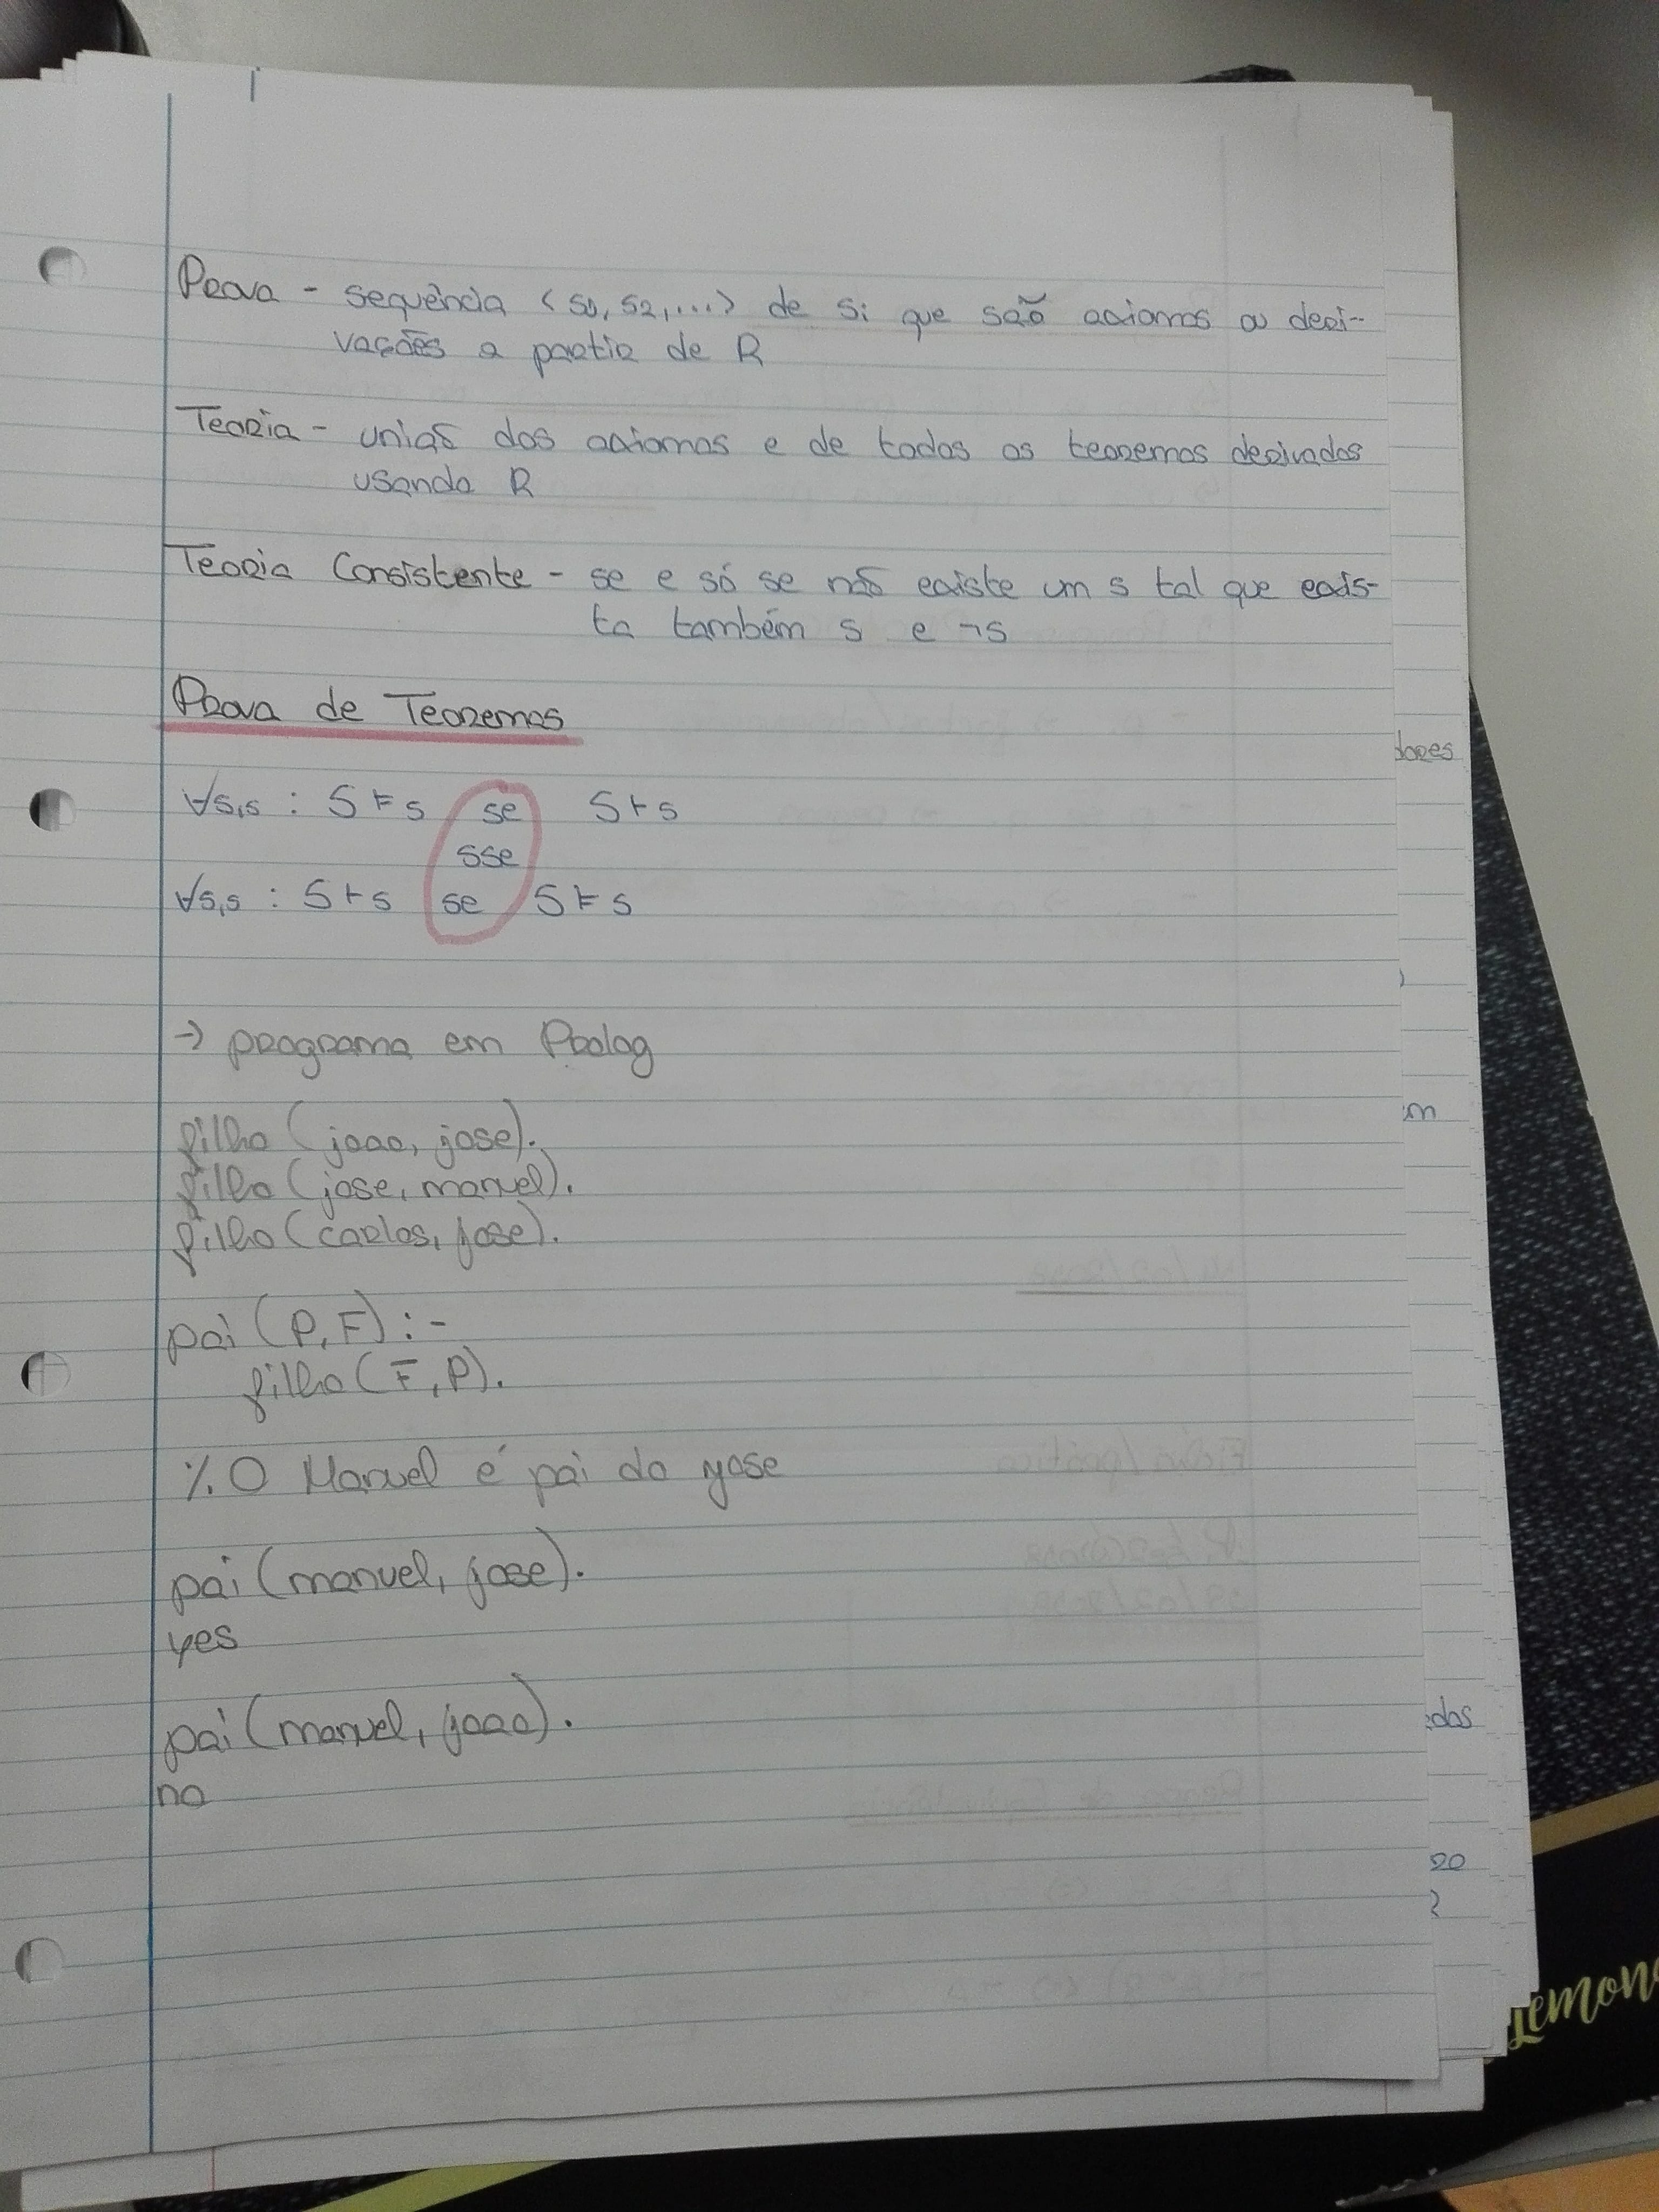 Prova - sequência <s1, s2, ...> de si que são axiomas ou deri-
vações a partir de R
Teoria - união dos axiomas e de todos os teoremas derivados
usando R
Teoria Consistente - se e só se não existe um s tal que exis-
ta também s e ¬s
Prova de Teoremas
∀S,s : S ⊨ s se S ⊢ s
sse
∀S,s : S ⊢ s se S ⊨ s
→ programa em Prolog
filho (joao, jose).
filho (jose, manuel).
filho (carlos, jose).
pai (P, F) :-
filho (F, P).
% O Manuel é pai do jose
pai (manuel, jose).
yes
pai (manuel, joao).
no
dores
em
edas
20
?
Lemon